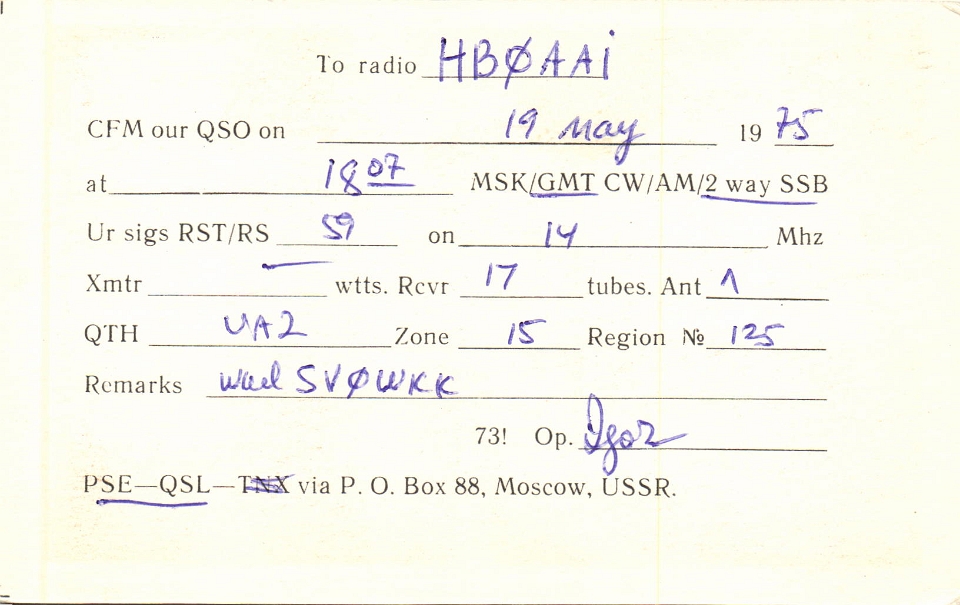 To radio HBØAAi
CFM our QSO on 19 may 1975
at 18 07 MSK/GMT CW/AM/2 way SSB
Ur sigs RST/RS 59 on 14 Mhz
Xmtr wtts. Rcvr 17 tubes. Ant Λ
QTH UA2 Zone 15 Region № 125
Remarks SVØWKK
73! Op. Igor
PSE—QSL—TNX via P. O. Box 88, Moscow, USSR.